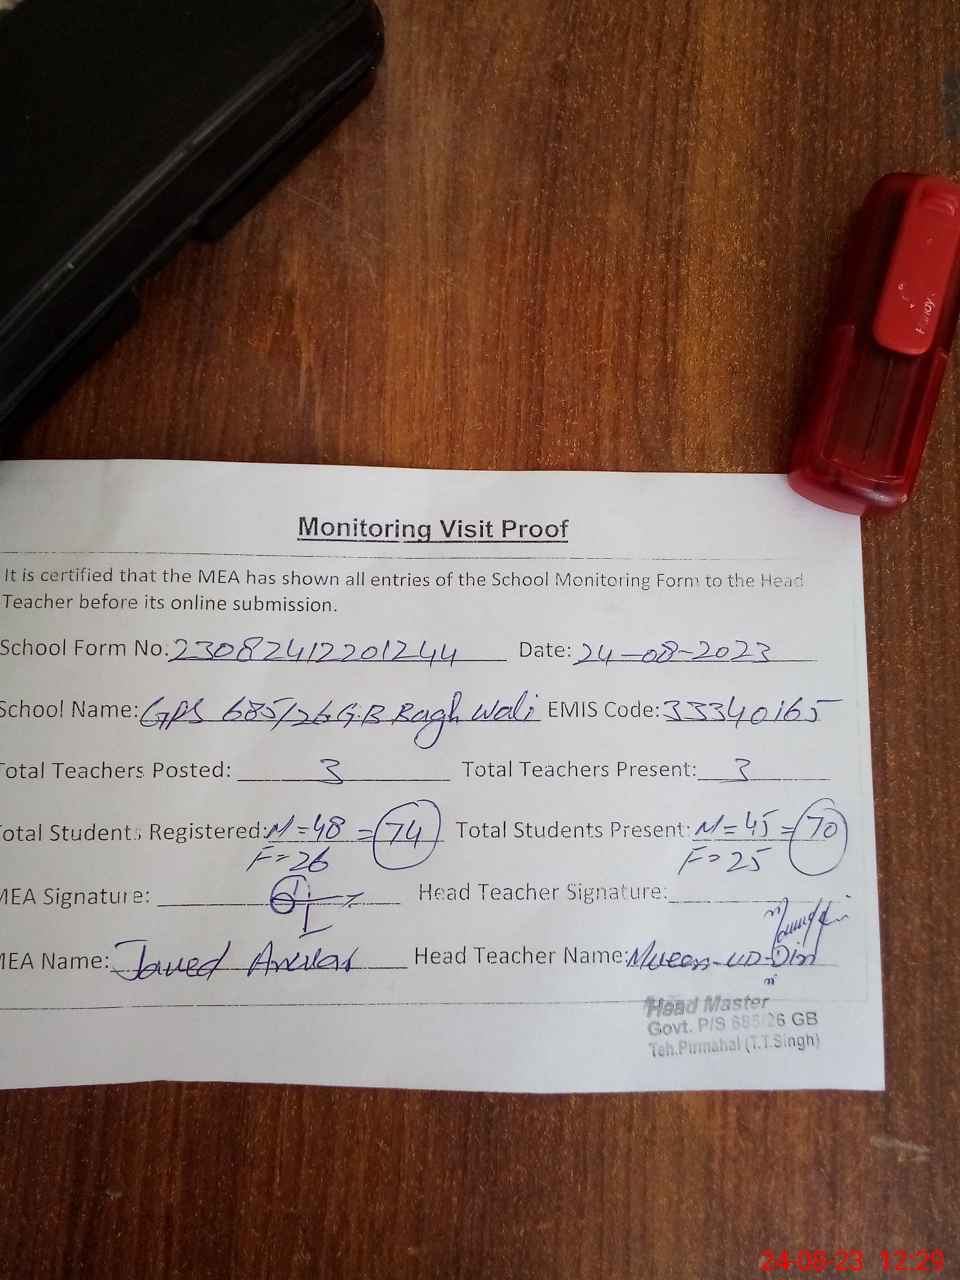 Handy
Monitoring Visit Proof
It is certified that the MEA has shown all entries of the School Monitoring Form to the Head
Teacher before its online submission.
School Form No. 23082412201244 Date: 24-08-2023
School Name: GPS 685/26 G.B Bagh Wali EMIS Code: 33340165
Total Teachers Posted: 3 Total Teachers Present: 3
Total Students Registered: M=48 = 74 Total Students Present: M=45 = 70
F=26 F=25
MEA Signature: Head Teacher Signature:
MEA Name: Javed Head Teacher Name: -ud-Din
Head Master
Govt. P/S 685/26 GB
Teh.Pirmahal (T.T.Singh)
24-08-23 12:29